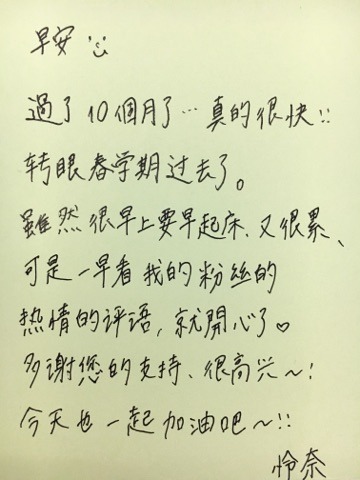 早安  :)
過了10個月了…真的很快!!
转眼春学期过去了。
雖然很早上要早起床、又很累、
可是一早看我的粉丝的
热情的评语,就開心了♡
多谢您的支持、很高兴～!
今天也一起加油吧～!!
怜奈